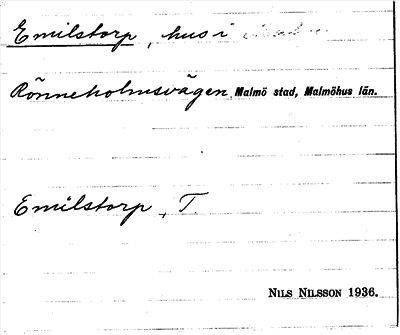 Emilstorp, hus i
Rönneholmsvägen Malmö stad, Malmöhus län.
Emilstorp, T.
NILS NILSSON 1936.